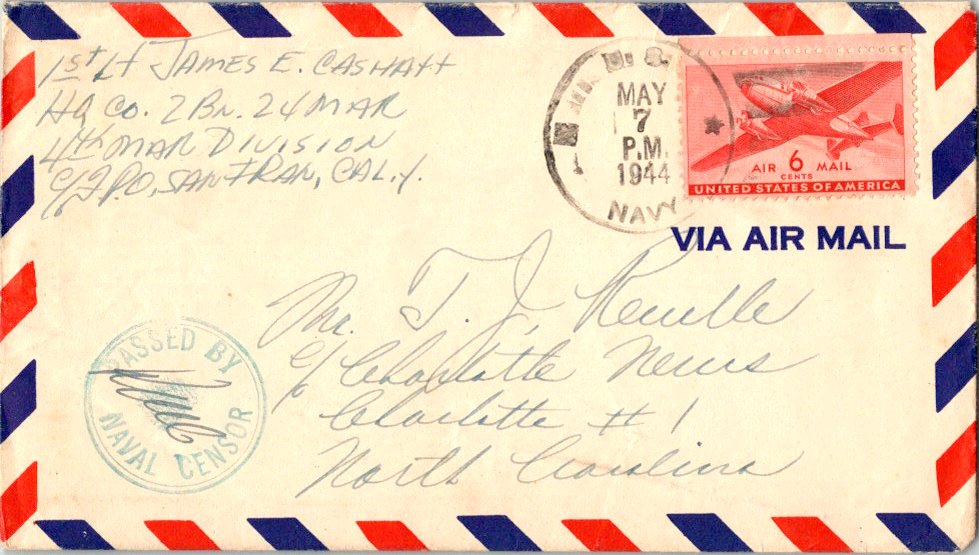 1st Lt JAMES E. CASHATT
HQ Co. 2 BN. 24 MAR
4th MAR DIVISION
c/o F.P.O. SAN FRAN, CAL.
U. S.
MAY
7
P.M.
1944
NAVY
AIR 6 MAIL
CENTS
UNITED STATES OF AMERICA
VIA AIR MAIL
Mr. T. J.
c/o Charlotte News
Charlotte # 1
North Carolina
PASSED BY
NAVAL CENSOR